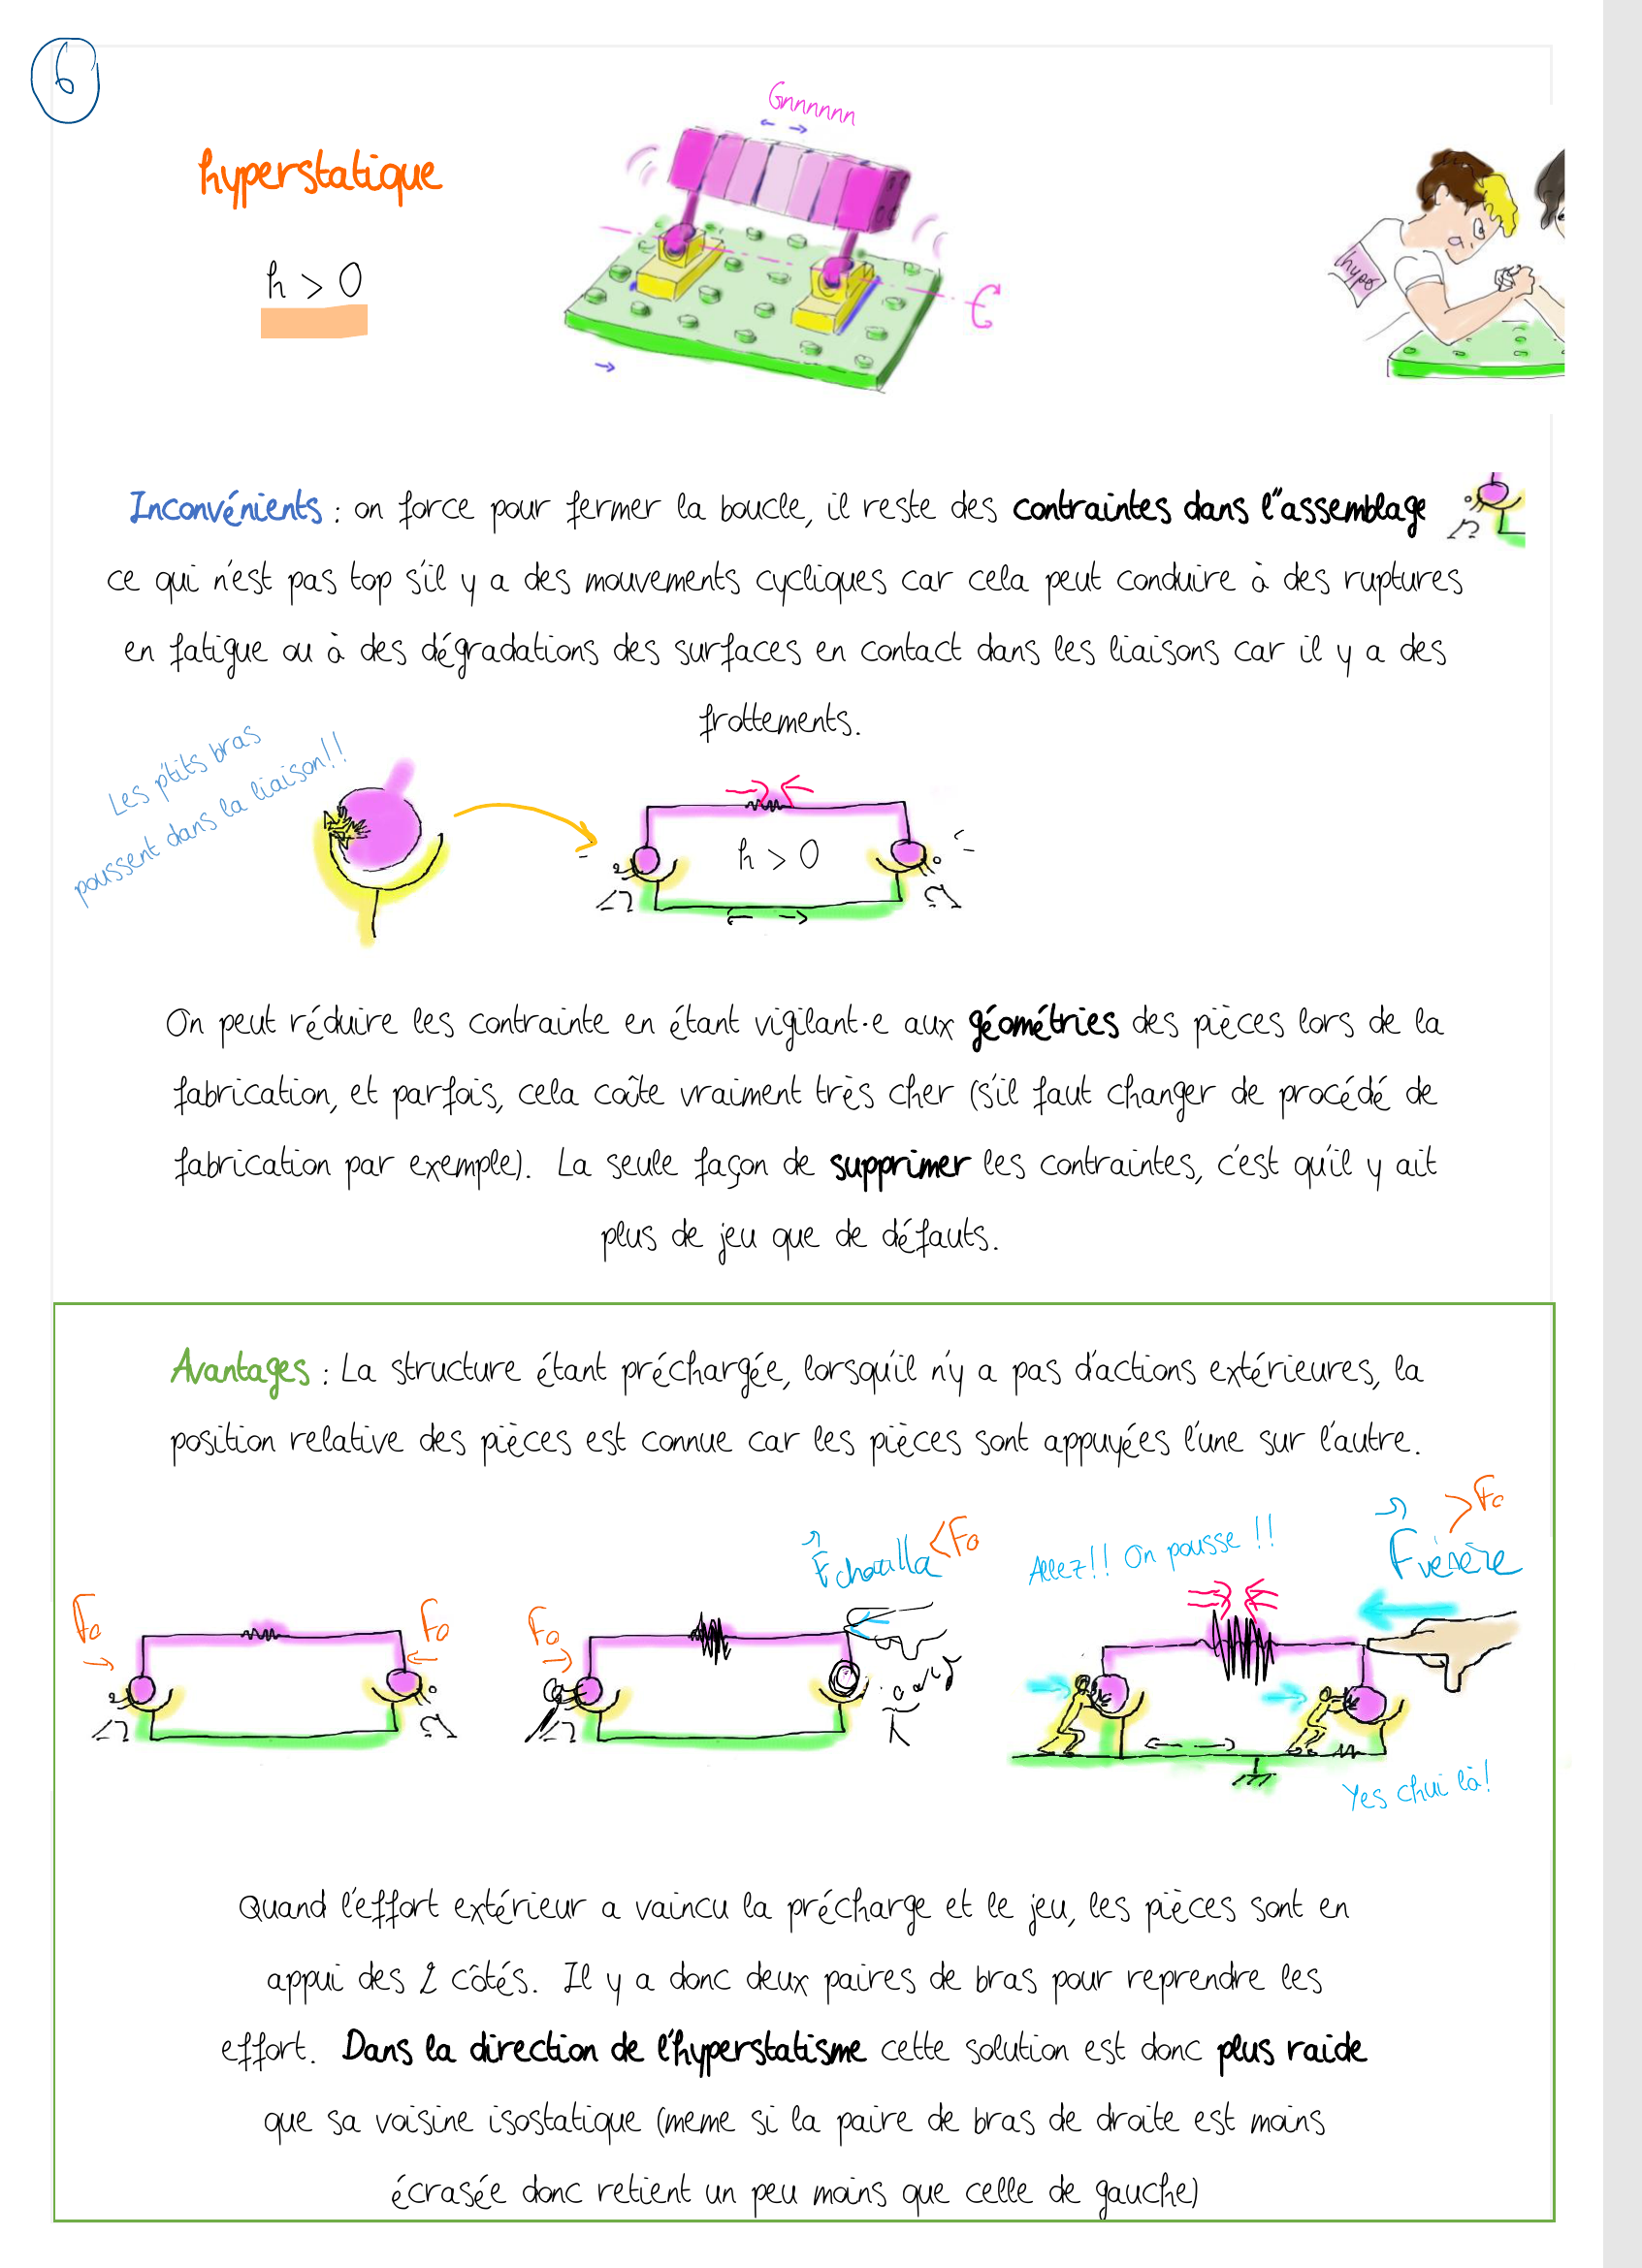 6
Gnnnnnn
hyperstatique
h > 0
hypo
Inconvénients : on force pour fermer la boucle, il reste des contraintes dans l'’assemblage
ce qui n'est pas top s'il y a des mouvements cycliques car cela peut conduire à des ruptures
en fatigue ou à des dégradations des surfaces en contact dans les liaisons car il y a des
frottements.
Les p'tits bras
poussent dans la liaison!!
h > 0
On peut réduire les contrainte en étant vigilant·e aux géométries des pièces lors de la
fabrication, et parfois, cela coûte vraiment très cher (s'il faut changer de procédé de
fabrication par exemple). La seule façon de supprimer les contraintes, c'est qu'il y ait
plus de jeu que de défauts.
Avantages : La structure étant préchargée, lorsqu'il n'y a pas d'actions extérieures, la
position relative des pièces est connue car les pièces sont appuyées l'une sur l'autre.
F0
F0
F0
Fchouilla < F0
Allez!! On pousse !!
Fvénère > F0
Yes chui là!
Quand l'effort extérieur a vaincu la précharge et le jeu, les pièces sont en
appui des 2 côtés. Il y a donc deux paires de bras pour reprendre les
effort. Dans la direction de l'hyperstatisme cette solution est donc plus raide
que sa voisine isostatique (meme si la paire de bras de droite est moins
écrasée donc retient un peu moins que celle de gauche)